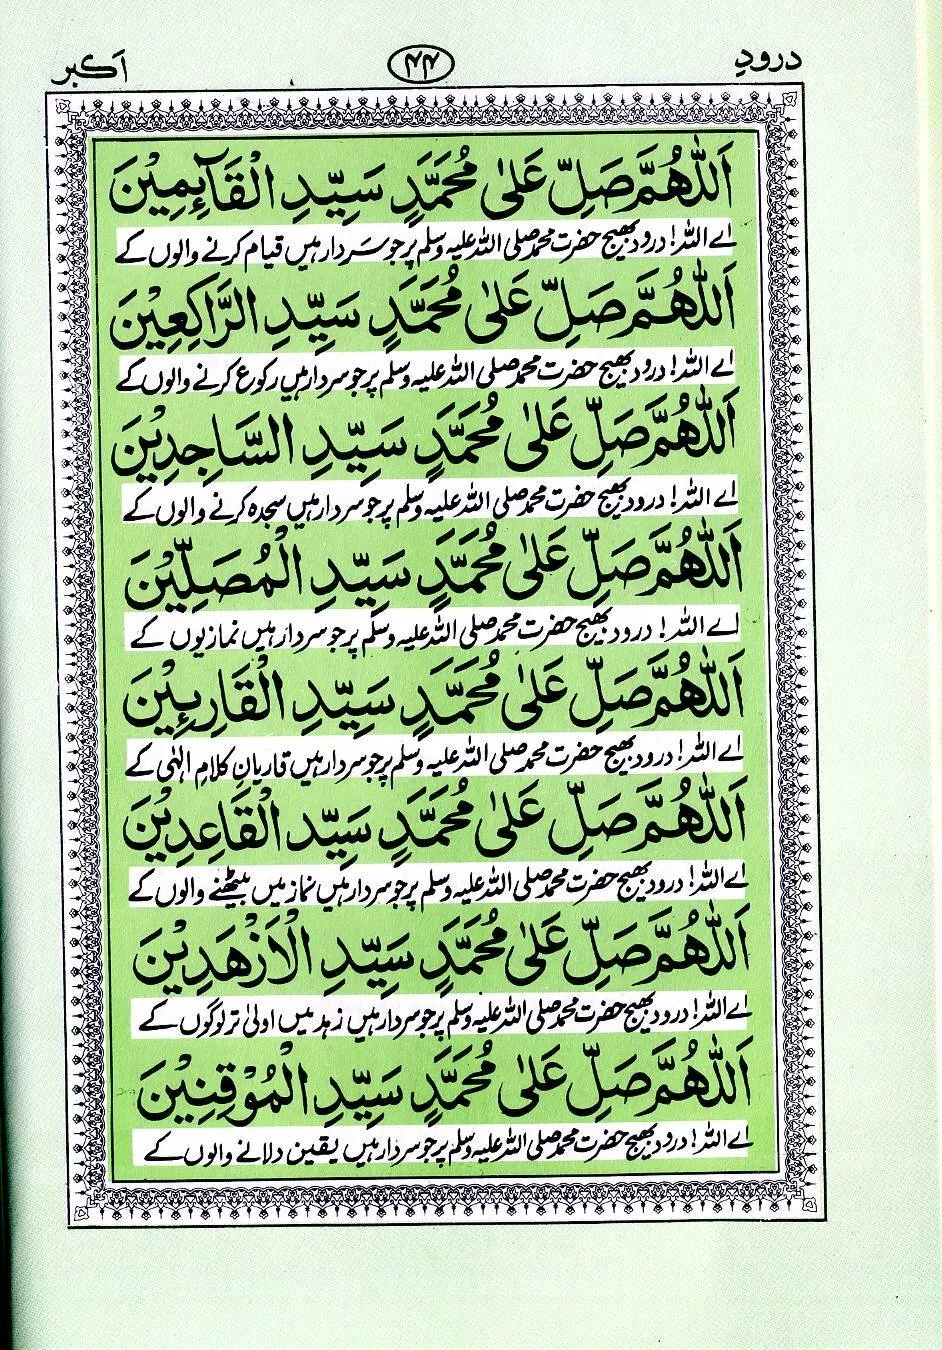 درودِ ۴۴ اکبر
اَللّٰهُمَّ صَلِّ عَلٰى مُحَمَّدٍ سَيِّدِ الْقَآئِمِيْنَ
اے اللہ! درود بھیج حضرت محمد صلی اللہ علیہ وسلم پر جو سردار ہیں قیام کرنے والوں کے
اَللّٰهُمَّ صَلِّ عَلٰى مُحَمَّدٍ سَيِّدِ الرَّاكِعِيْنَ
اے اللہ! درود بھیج حضرت محمد صلی اللہ علیہ وسلم پر جو سردار ہیں رکوع کرنے والوں کے
اَللّٰهُمَّ صَلِّ عَلٰى مُحَمَّدٍ سَيِّدِ السَّاجِدِيْنَ
اے اللہ! درود بھیج حضرت محمد صلی اللہ علیہ وسلم پر جو سردار ہیں سجدہ کرنے والوں کے
اَللّٰهُمَّ صَلِّ عَلٰى مُحَمَّدٍ سَيِّدِ الْمُصَلِّيْنَ
اے اللہ! درود بھیج حضرت محمد صلی اللہ علیہ وسلم پر جو سردار ہیں نمازیوں کے
اَللّٰهُمَّ صَلِّ عَلٰى مُحَمَّدٍ سَيِّدِ الْقَارِئِيْنَ
اے اللہ! درود بھیج حضرت محمد صلی اللہ علیہ وسلم پر جو سردار ہیں قاریانِ کلامِ الٰہی کے
اَللّٰهُمَّ صَلِّ عَلٰى مُحَمَّدٍ سَيِّدِ الْقَاعِدِيْنَ
اے اللہ! درود بھیج حضرت محمد صلی اللہ علیہ وسلم پر جو سردار ہیں نماز میں بیٹھنے والوں کے
اَللّٰهُمَّ صَلِّ عَلٰى مُحَمَّدٍ سَيِّدِ الْاَزْهَدِيْنَ
اے اللہ! درود بھیج حضرت محمد صلی اللہ علیہ وسلم پر جو سردار ہیں زہد میں اولیٰ تر لوگوں کے
اَللّٰهُمَّ صَلِّ عَلٰى مُحَمَّدٍ سَيِّدِ الْمُوْقِنِيْنَ
اے اللہ! درود بھیج حضرت محمد صلی اللہ علیہ وسلم پر جو سردار ہیں یقین دلانے والوں کے